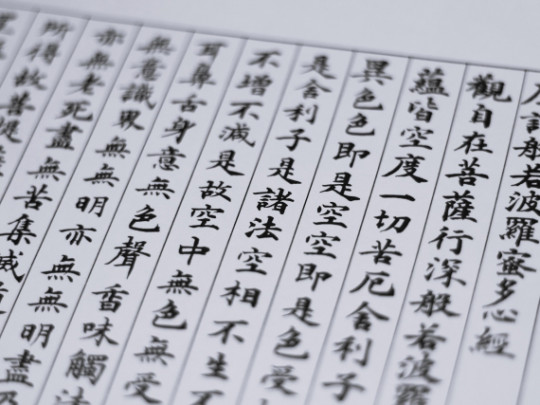 訶般若波羅蜜多心經
觀自在菩薩行深般若波羅
蘊皆空度一切苦厄舍利子
異色色即是空空即是色受
是舍利子是諸法空相不生不
不增不減是故空中無色無受
耳鼻舌身意無色聲香味觸法
無意識界無無明亦無無明盡乃
亦無老死盡無苦集滅
所得故菩提